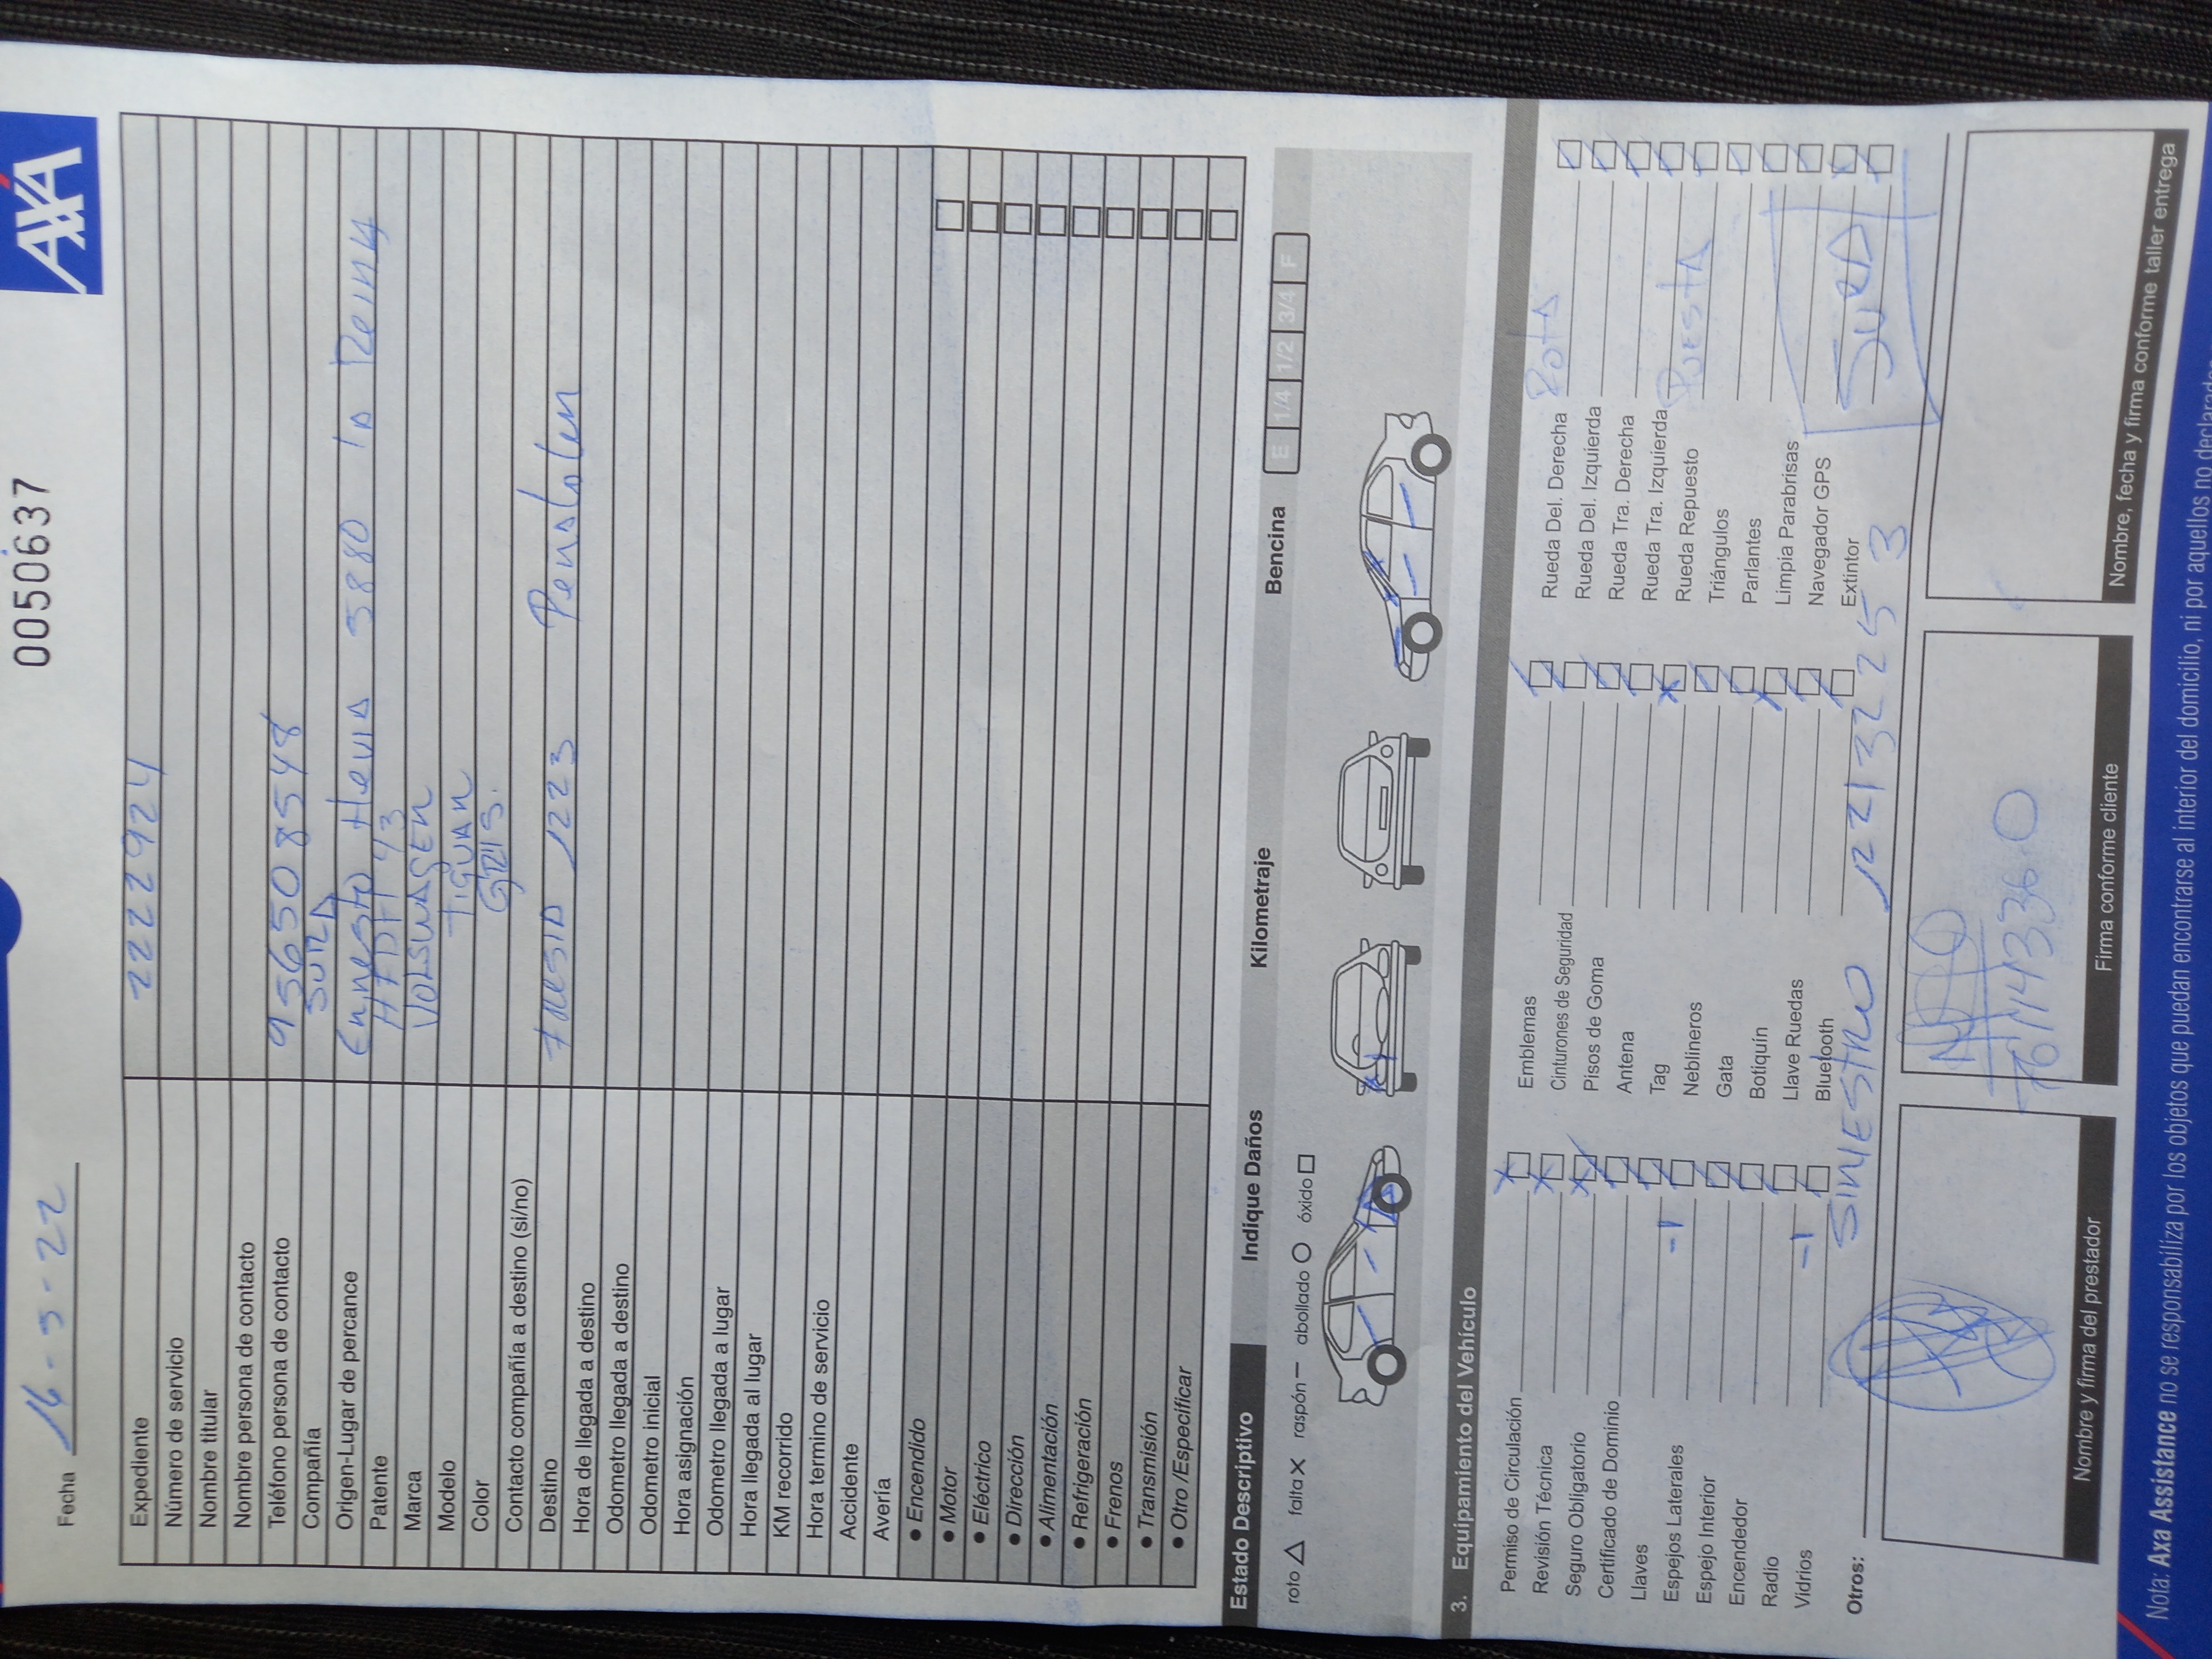 AXA
0050637
Fecha 16-5-22
Expediente 2222924
Número de servicio
Nombre titular
Nombre persona de contacto
Teléfono persona de contacto 956508548
Compañía SURA
Origen-Lugar de percance Ernesto Hevia 5880 la Reina
Patente
Marca VOLSWAGEN
Modelo TIGUAN
Color GRIS.
Contacto compañía a destino (si/no)
Destino 1223 Peñalolen
Hora de llegada a destino
Odometro llegada a destino
Odometro inicial
Hora asignación
Odometro llegada a lugar
Hora llegada al lugar
KM recorrido
Hora termino de servicio
Accidente
Avería
• Encendido
• Motor
• Eléctrico
• Dirección
• Alimentación
• Refrigeración
• Frenos
• Transmisión
• Otro /Especificar
Estado Descriptivo Indique Daños Kilometraje Bencina
E 1/4 1/2 3/4 F
roto falta raspón abollado óxido
3. Equipamiento del Vehículo
Permiso de Circulación
Revisión Técnica
Seguro Obligatorio
Certificado de Dominio
Llaves
Espejos Laterales
Espejo Interior
Encendedor
Radio
Vidrios
Emblemas
Cinturones de Seguridad
Pisos de Goma
Antena
Tag
Neblineros
Gata
Botiquín
Llave Ruedas
Bluetooth
Rueda Del. Derecha Rota
Rueda Del. Izquierda
Rueda Tra. Derecha
Rueda Tra. Izquierda
Rueda Repuesto Puesta
Triángulos
Parlantes
Limpia Parabrisas
Navegador GPS
Extintor
SURA
Otros: SINIESTRO 12213225 3
Nombre y firma del prestador
Firma conforme cliente
Nombre, fecha y firma conforme taller entrega
Nota: Axa Assistance no se responsabiliza por los objetos que puedan encontrarse al interior del domicilio, ni por aquellos no declarados